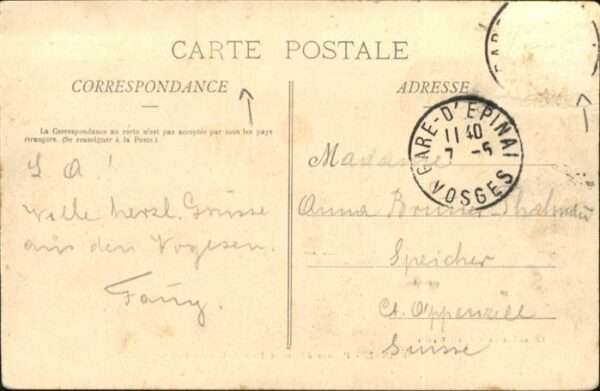 CARTE POSTALE
CORRESPONDANCE
La Correspondance au recto n'est pas acceptée par tous les pays
étrangers. (Se renseigner à la Poste.)
herzl. Grüsse
aus den Vogesen.
ADRESSE
GARE
GARE-D'EPINAL
11 40
7 -5
VOSGES
Madame
Anna
Speicher
Ct. Appenzell
Suisse